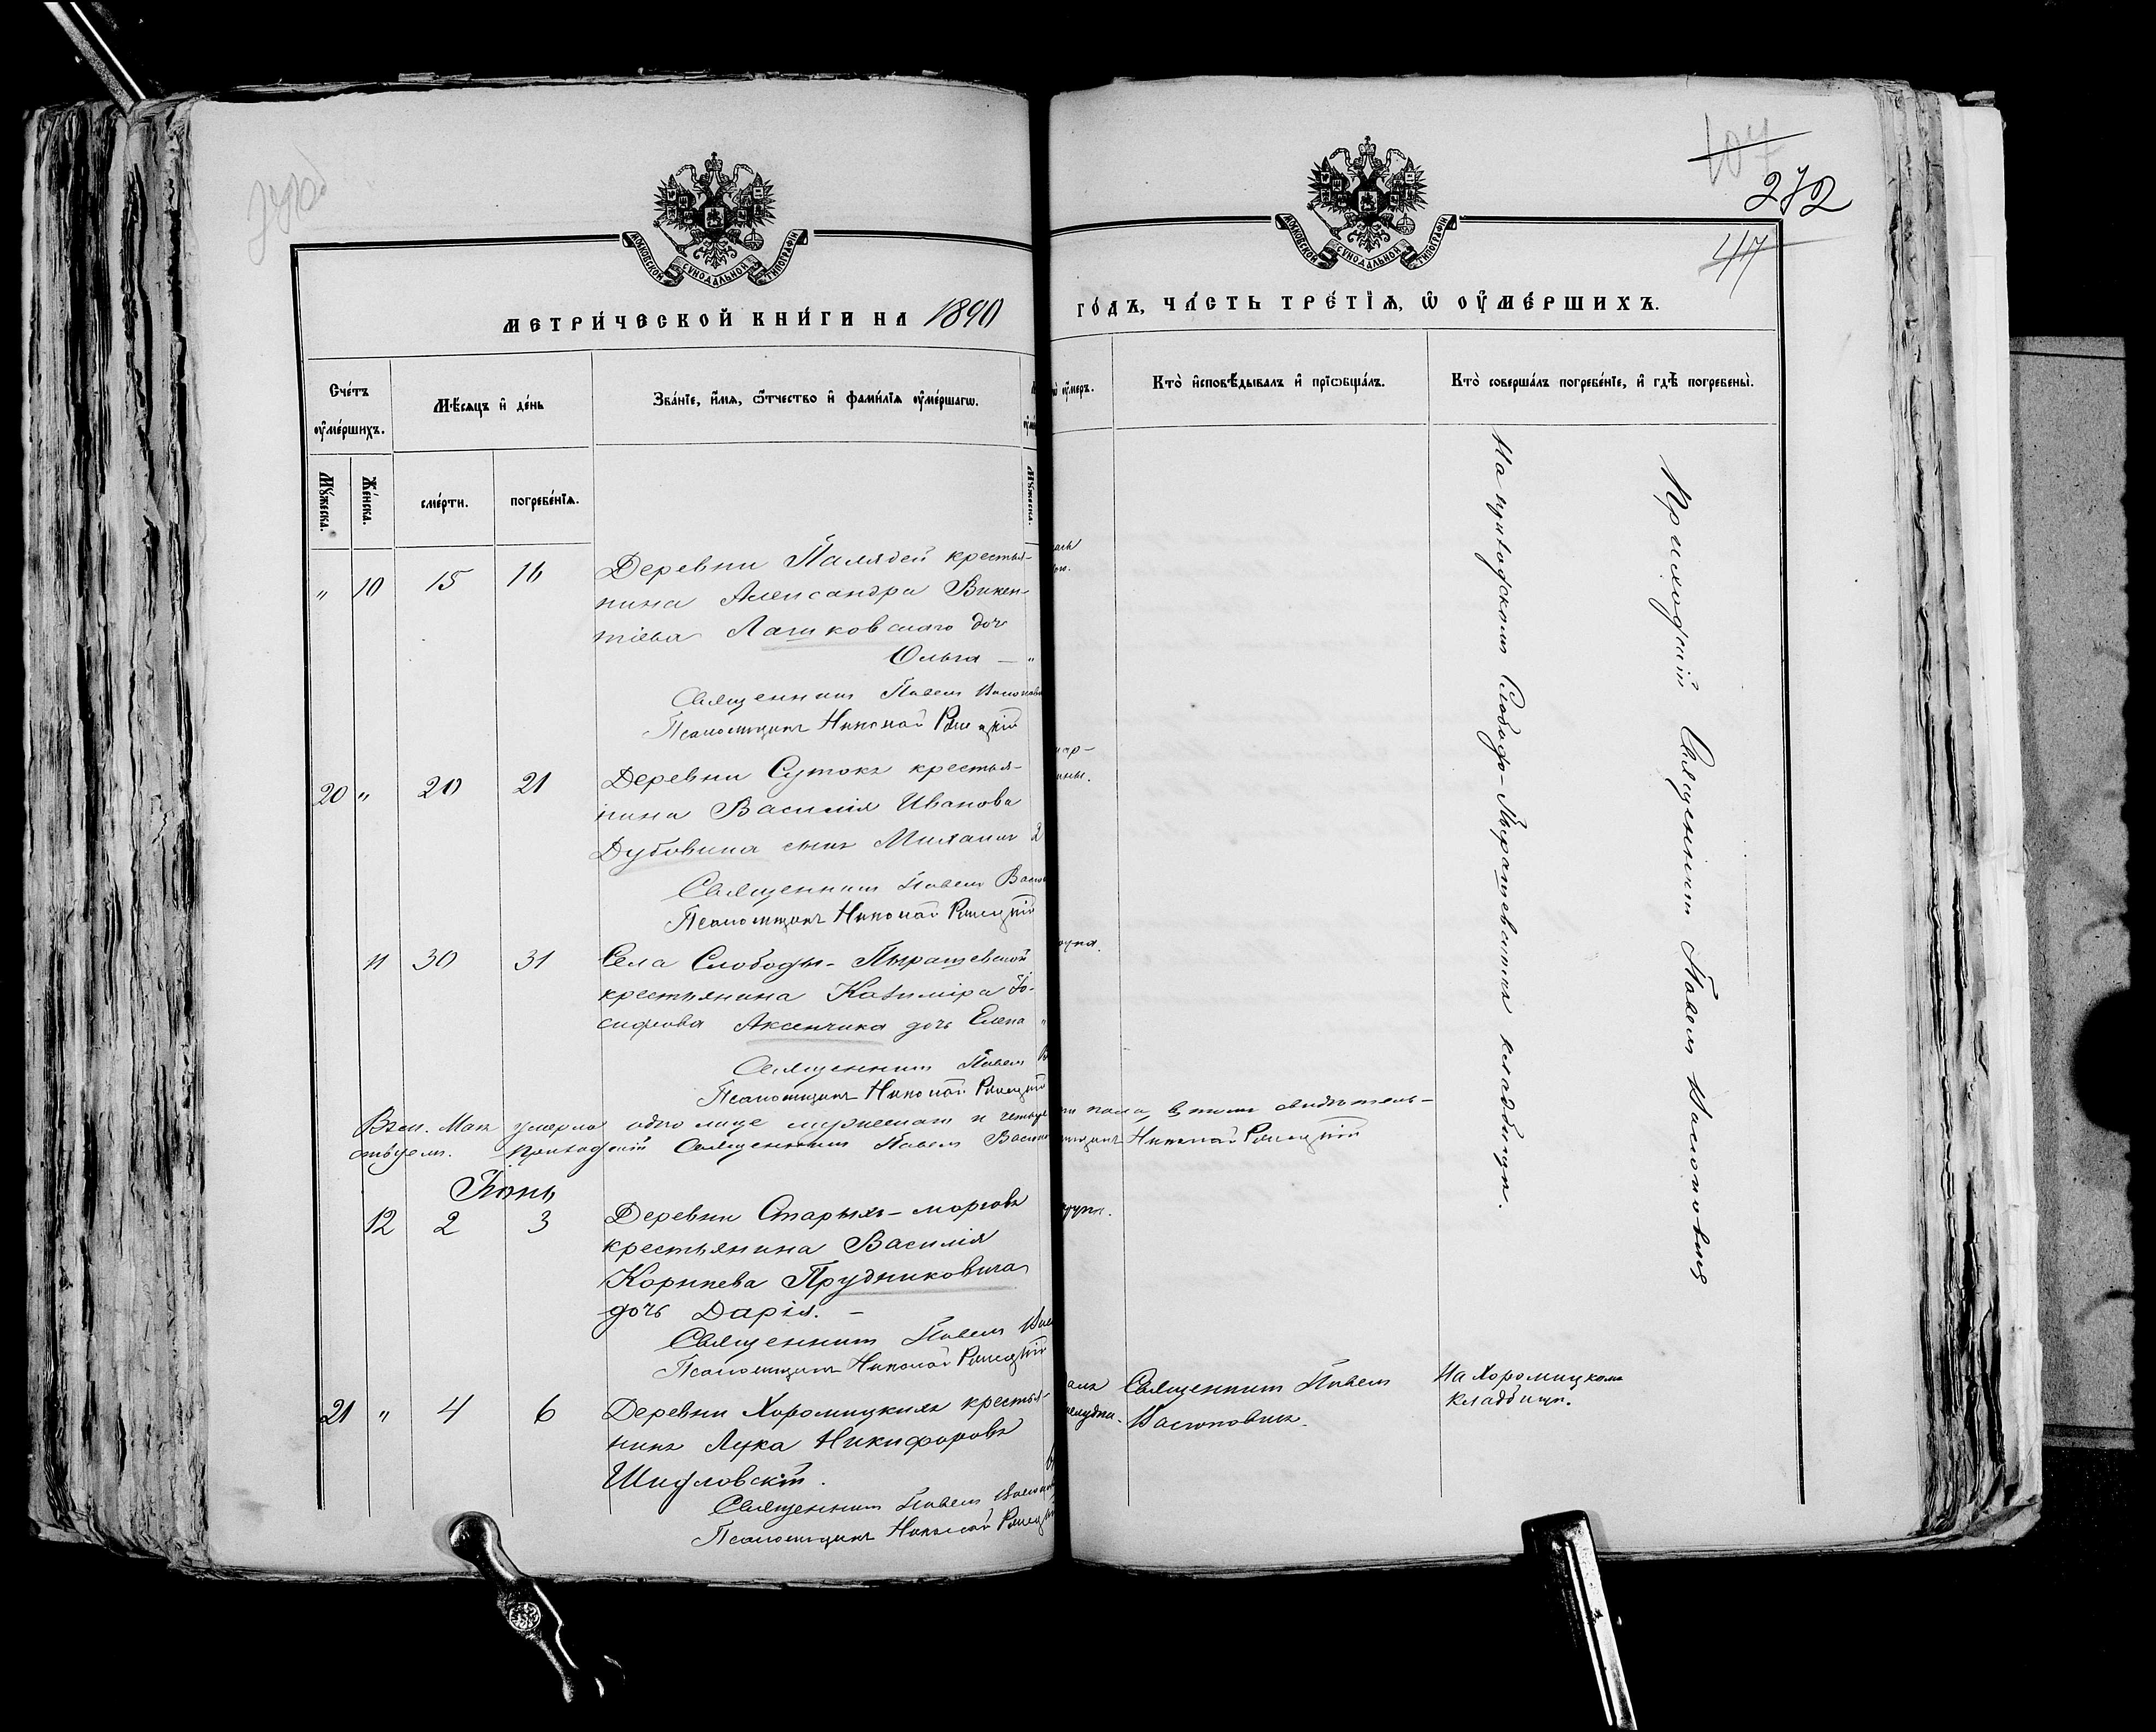 104
272
47
МОСКОВСКОЙ СѴНОДАЛЬНОЙ ТИПОГРАФІИ
МОСКОВСКОЙ СѴНОДАЛЬНОЙ ТИПОГРАФІИ
МЕТРИ́ЧЕСКОЙ КНИ́ГИ НА 1890 ГО́ДЪ, ЧА́СТЬ ТРЕ́ТІѦ, Ѡ҆ ОУ҆МЕ́РШИХЪ.
Сче́тъ оу҆ме́ршихъ.
Мѣ́сѧцъ и҆ де́нь
Зва́нїе, и҆́мѧ, ѻ҆́тчество и҆ фами́лїѧ оу҆ме́ршагѡ.
оу҆́меръ.
Кто̀ и҆сповѣ́дывалъ и҆ прїѡбща́лъ.
Кто̀ соверша́лъ погребе́нїе, и҆ гдѣ̀ погребены̀.
Мꙋ́жеска.
Же́нска.
сме́рти.
погребе́нїѧ.
Мꙋ́жеска.
" 10 15 16 Деревни Палядей крестья-
нина Александра Викен-
тіева Лашковскаго дочь
Ольга — "
Священникъ Павелъ
Псаломщикъ Николай
20 " 20 21 Деревни Сутокъ крестья-
нина Василія Иванова
Дубовика сынъ Михаилъ 2
Священникъ Павелъ
Псаломщикъ Николай
11 30 31 Села Слободы-Пырашевской
крестьянина Казиміра Іо-
сифова Аксенчика дочь Елена "
Священникъ Павелъ
Псаломщикъ Николай
Въ м. Маѣ умерло одно лице мужескаго и пола, въ томъ свидѣтель-
ствуемъ. Приходскій Священникъ Павелъ Николай
Іюнь
12 2 3 Деревни Старыхъ-морговъ
крестьянина Василія
Корнѣева Прудниковича
дочь Дарія. —
Священникъ Павелъ
Псаломщикъ Николай
21 " 4 6 Деревни Хоромицкихъ крестья-
нинъ Лука Никифоровъ
Шидловскій.
Священникъ Павелъ
Псаломщикъ Николай
Священникъ Павелъ
Васюковичъ.
На Хоромицкомъ
кладбищѣ.
На приходскомъ Слободо-Пырашевскомъ кладбищѣ.
Приходскій Священникъ Павелъ Васюковичъ